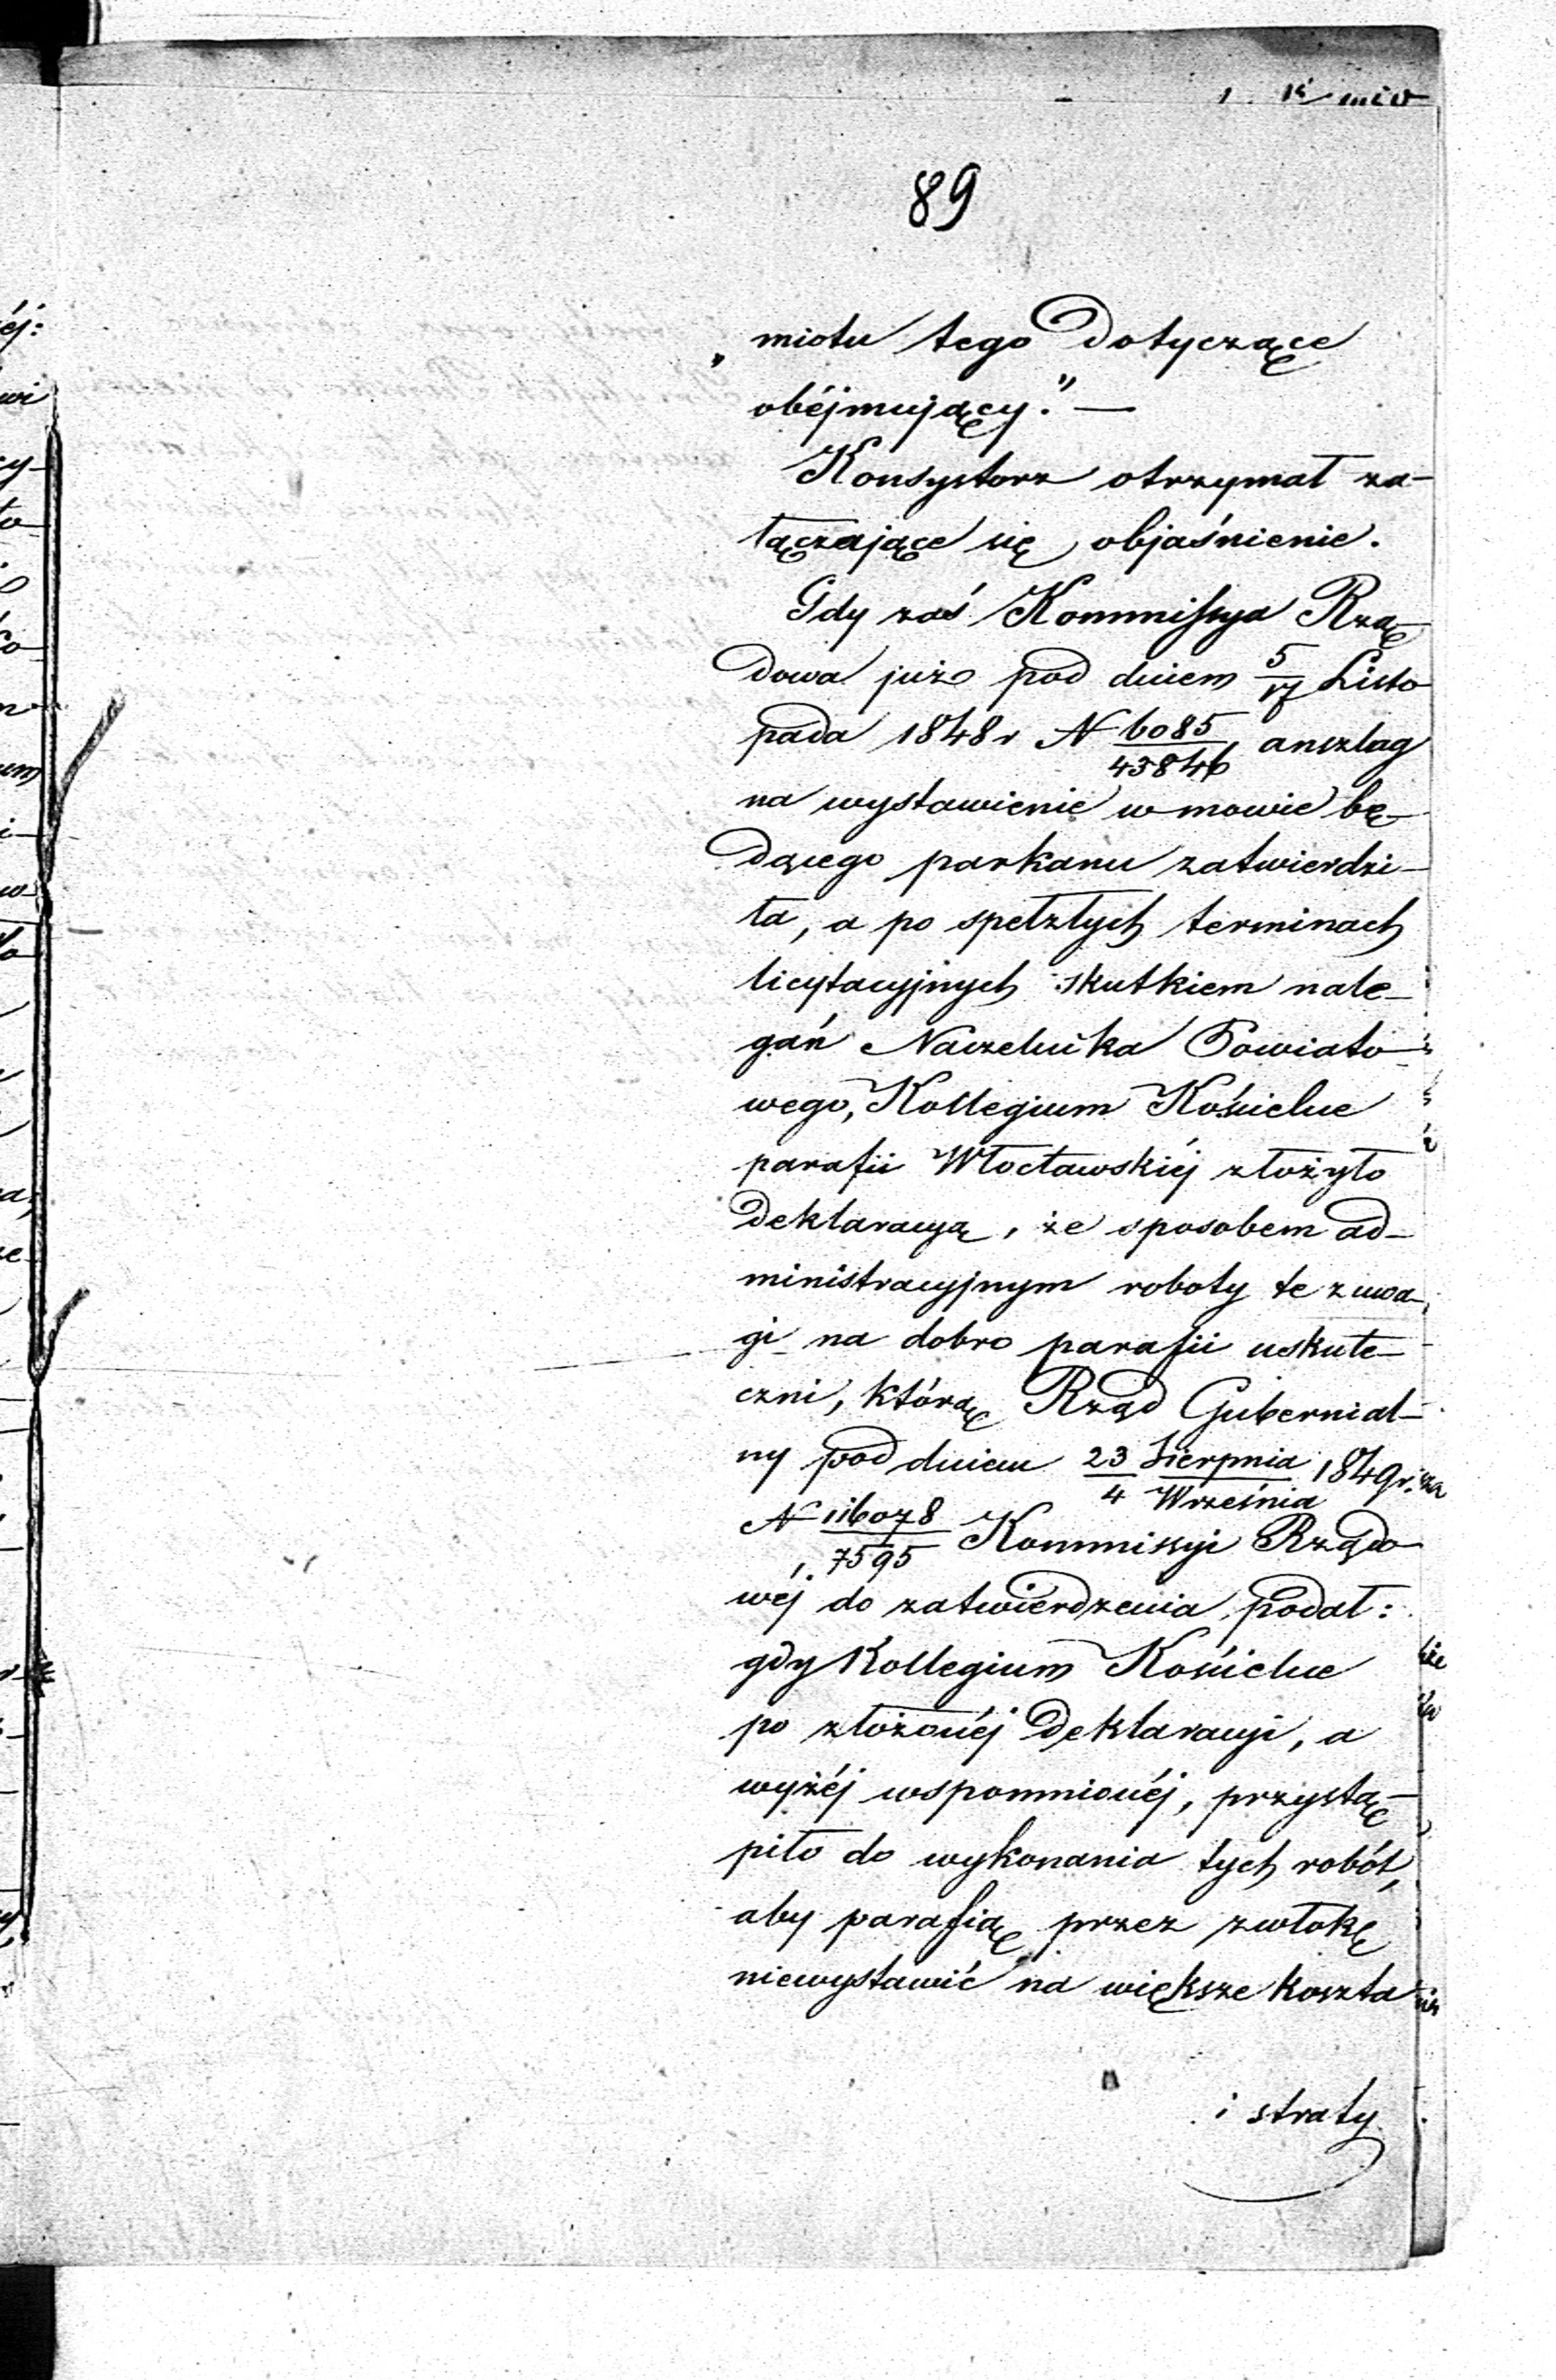 89
„ miotu tego dotyczące
obéjmujący." —
Konsystorz otrzymał za-
łączające się objaśnienie.
Gdy zaś Kommissya Rzą-
dowa już pod dniem 5/17 Listo-
pada 1848 r N 6085/43846 anszlag
na wystawienie w mowie bę-
dącego parkanu zatwierdzi-
ła, a po spełzłych terminach
licytacyjnych skutkiem nale-
gań Naczelnika Powiato-
wego, Kollegium Kościelne
parafii Włocławskiéj złożyło
deklaracyą, że sposobem ad-
ministracyjnym roboty te z uwa-
gi na dobro parafii uskute-
czni, którą Rząd Gubernial-
ny pod dniem 23 Sierpnia/4 Września 1849 r. za
N 116078/7595 Kommissyi Rządo-
wéj do zatwiérdzenia podał:
gdy Kollegium Kościelne
po złożonéj deklaracyi, a
wyżéj wspomnionéj, przystą-
piło do wykonania tych robót,
aby parafią przez zwłokę
niewystawić na większe koszta
i straty